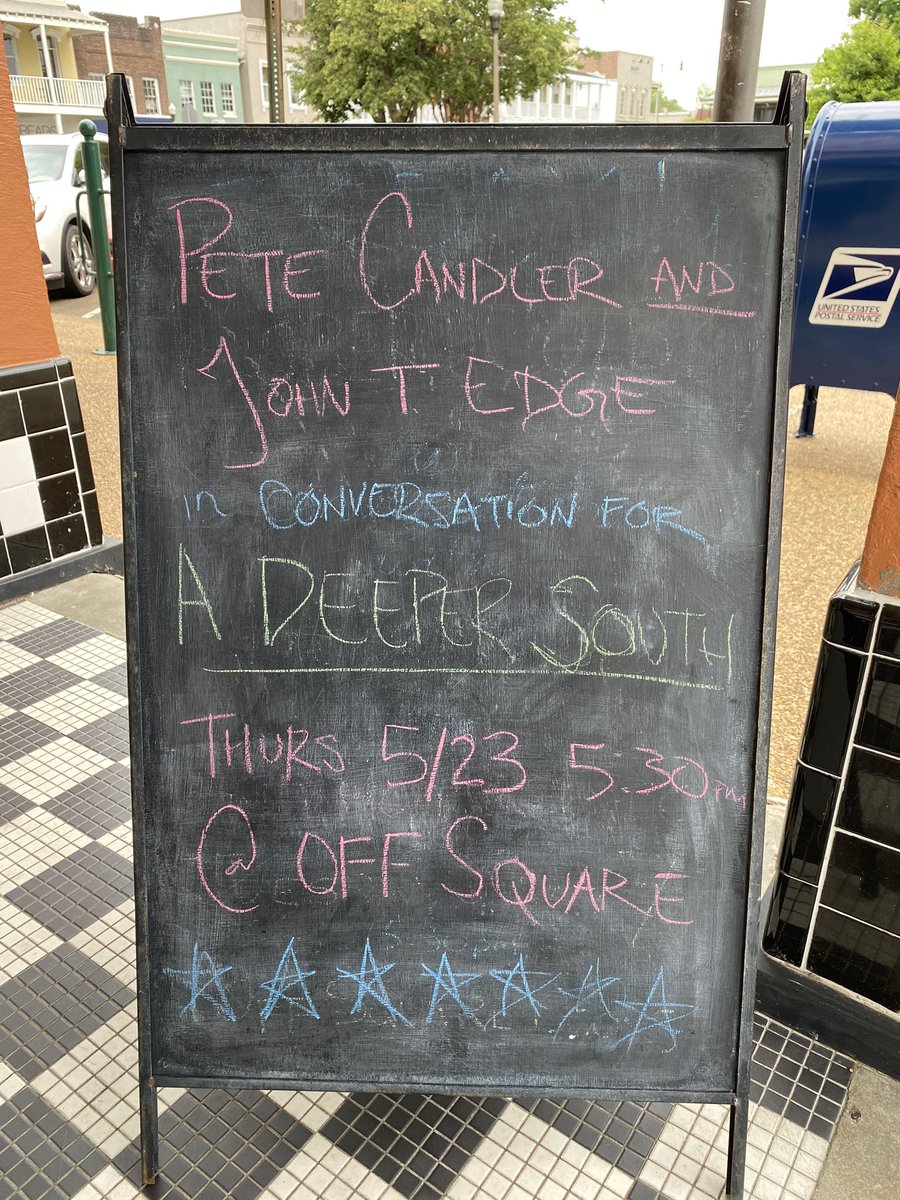 PETE CANDLER AND
JOHN T EDGE
in CONVERSATION FOR
A DEEPER SOUTH
THURS 5/23 5:30PM
@ OFF SQUARE
UNITED STATES
POSTAL SERVICE